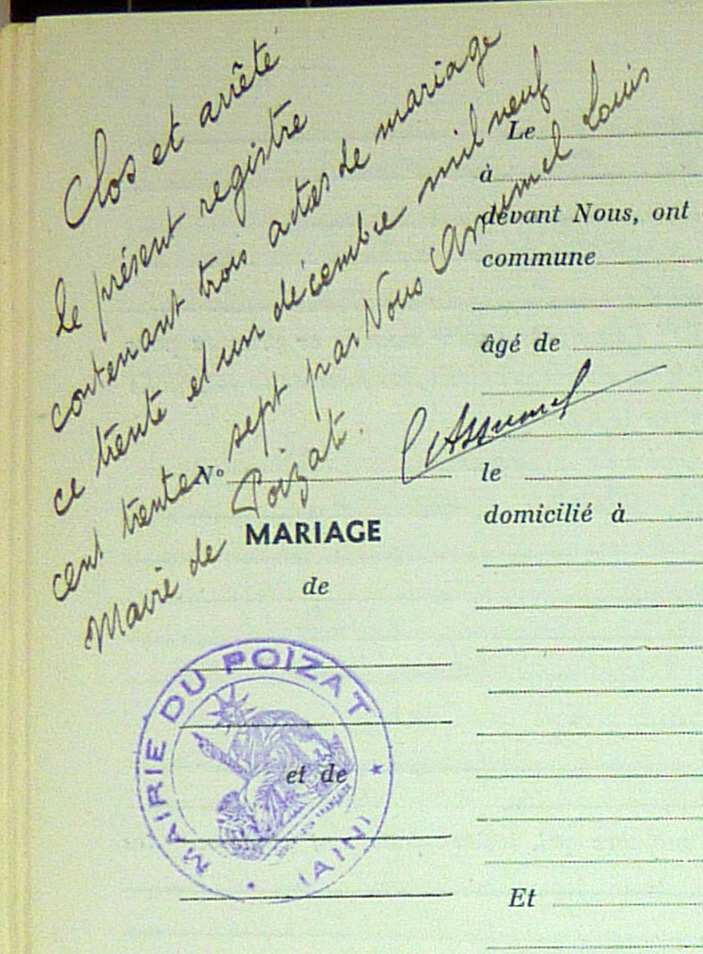 Clos et arrêté
le présent registre
contenant trois actes de mariage
ce trente et un décembre mil neuf
cent trente sept par Nous Assumel Louis
Maire de Poizat.
Assumel
N°
MARIAGE
de
et de
MAIRIE DU POIZAT
(AIN)
Le
à
devant Nous, ont
commune
âgé de
le
domicilié à
Et